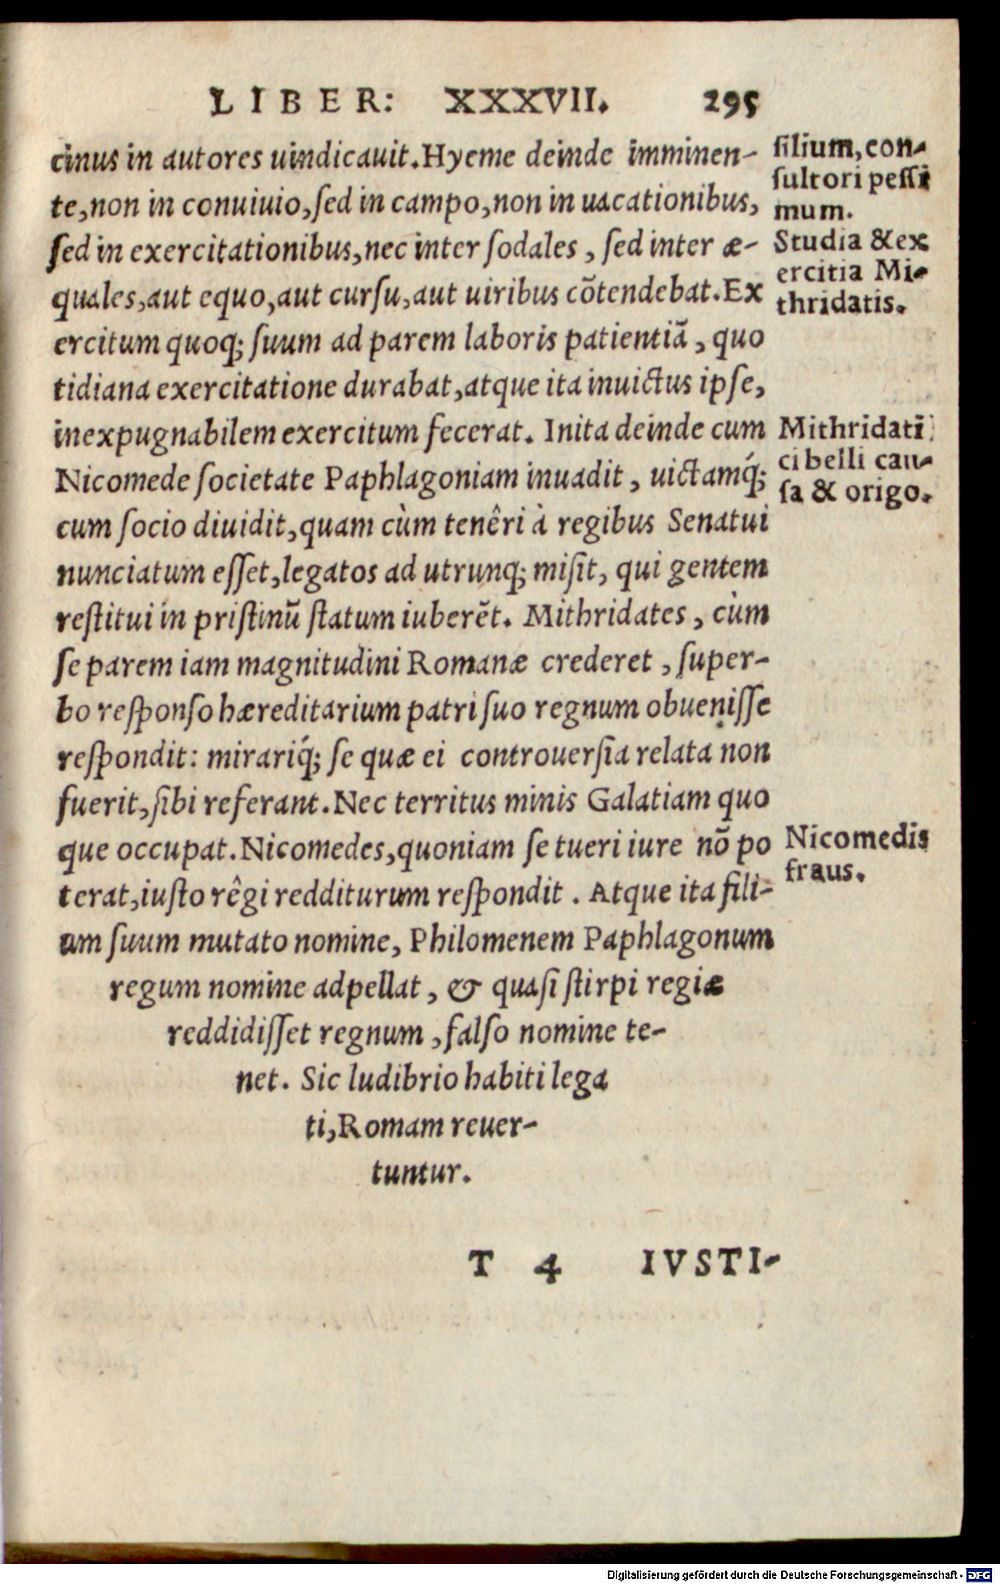 LIBER: XXXVII. 295
cinus in autores uindicauit. Hyeme deinde imminen-
te, non in conuiuio, sed in campo, non in uacationibus,
sed in exercitationibus, nec inter sodales, sed inter æ-
quales, aut equo, aut cursu, aut uiribus cõtendebat. Ex
ercitum quoq; suum ad parem laboris patientiã, quo
tidiana exercitatione durabat, atque ita inuictus ipse,
inexpugnabilem exercitum fecerat. Inita deinde cum
Nicomede societate Paphlagoniam inuadit, uictamq́;
cum socio diuidit, quam cùm tenêri à regibus Senatui
nunciatum esset, legatos ad utrunq; misit, qui gentem
restitui in pristinũ statum iuberẽt. Mithridates, cùm
se parem iam magnitudini Romanæ crederet, super-
bo responso hæreditarium patri suo regnum obuenisse
respondit: mirariq́; se quæ ei controuersia relata non
fuerit, sibi referant. Nec territus minis Galatiam quo
que occupat. Nicomedes, quoniam se tueri iure nõ po
terat, iusto rêgi redditurum respondit. Atque ita fili-
um suum mutato nomine, Philomenem Paphlagonum
regum nomine adpellat, & quasi stirpi regiæ
reddidisset regnum, falso nomine te-
net. Sic ludibrio habiti lega
ti, Romam reuer-
tuntur.
silium, con-
sultori pessi
mum.
Studia & ex
ercitia Mi-
thridatis.
Mithridati
ci belli cau-
sa & origo.
Nicomedis
fraus.
T 4 IVSTI-
Digitalisierung gefördert durch die Deutsche Forschungsgemeinschaft - DFG